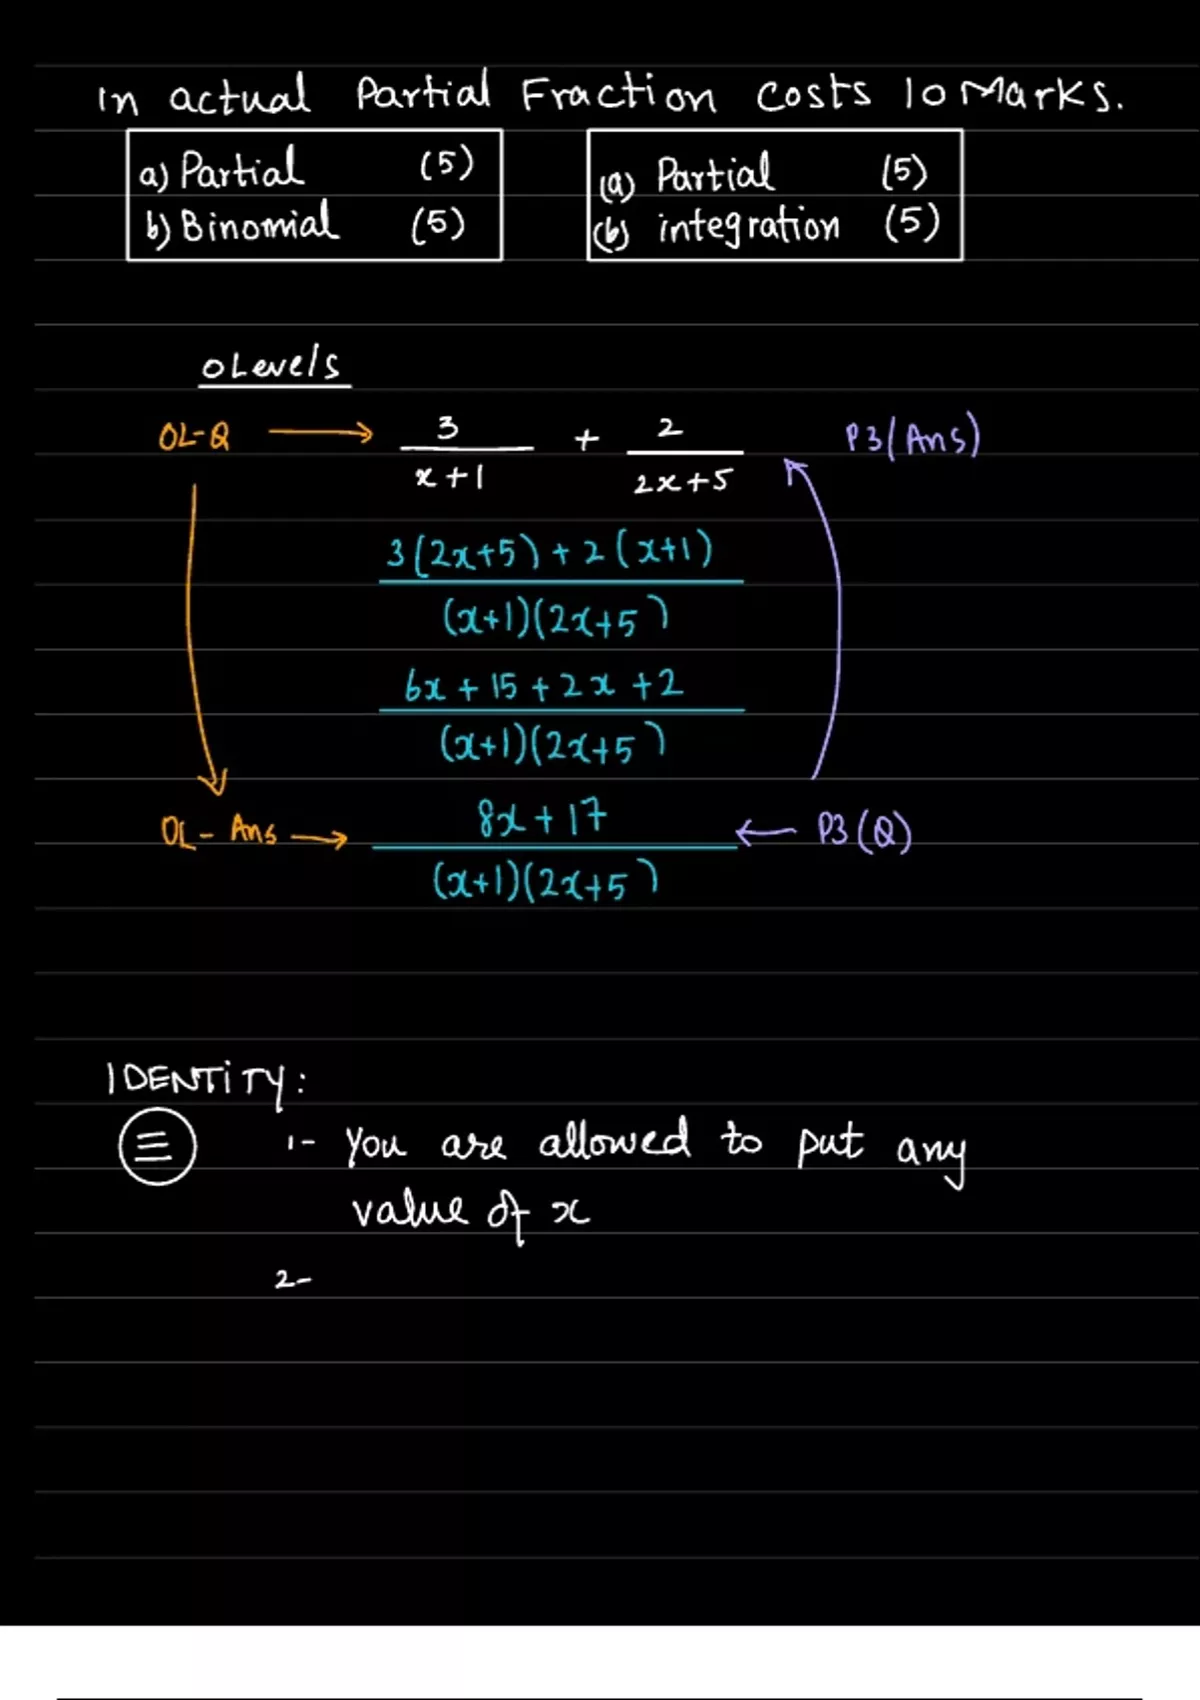 In actual Partial Fraction costs 10 Marks.
a) Partial (5)
b) Binomial (5)
(a) Partial (5)
(b) integration (5)
O Levels
OL-Q → 3/(x+1) + 2/(2x+5) P3(Ans)
3(2x+5)+2(x+1)
(x+1)(2x+5)
6x+15+2x+2
(x+1)(2x+5)
OL-Ans → 8x+17 ← P3(Q)
(x+1)(2x+5)
IDENTiTY:
≡ 1- You are allowed to put any
value of x
2-